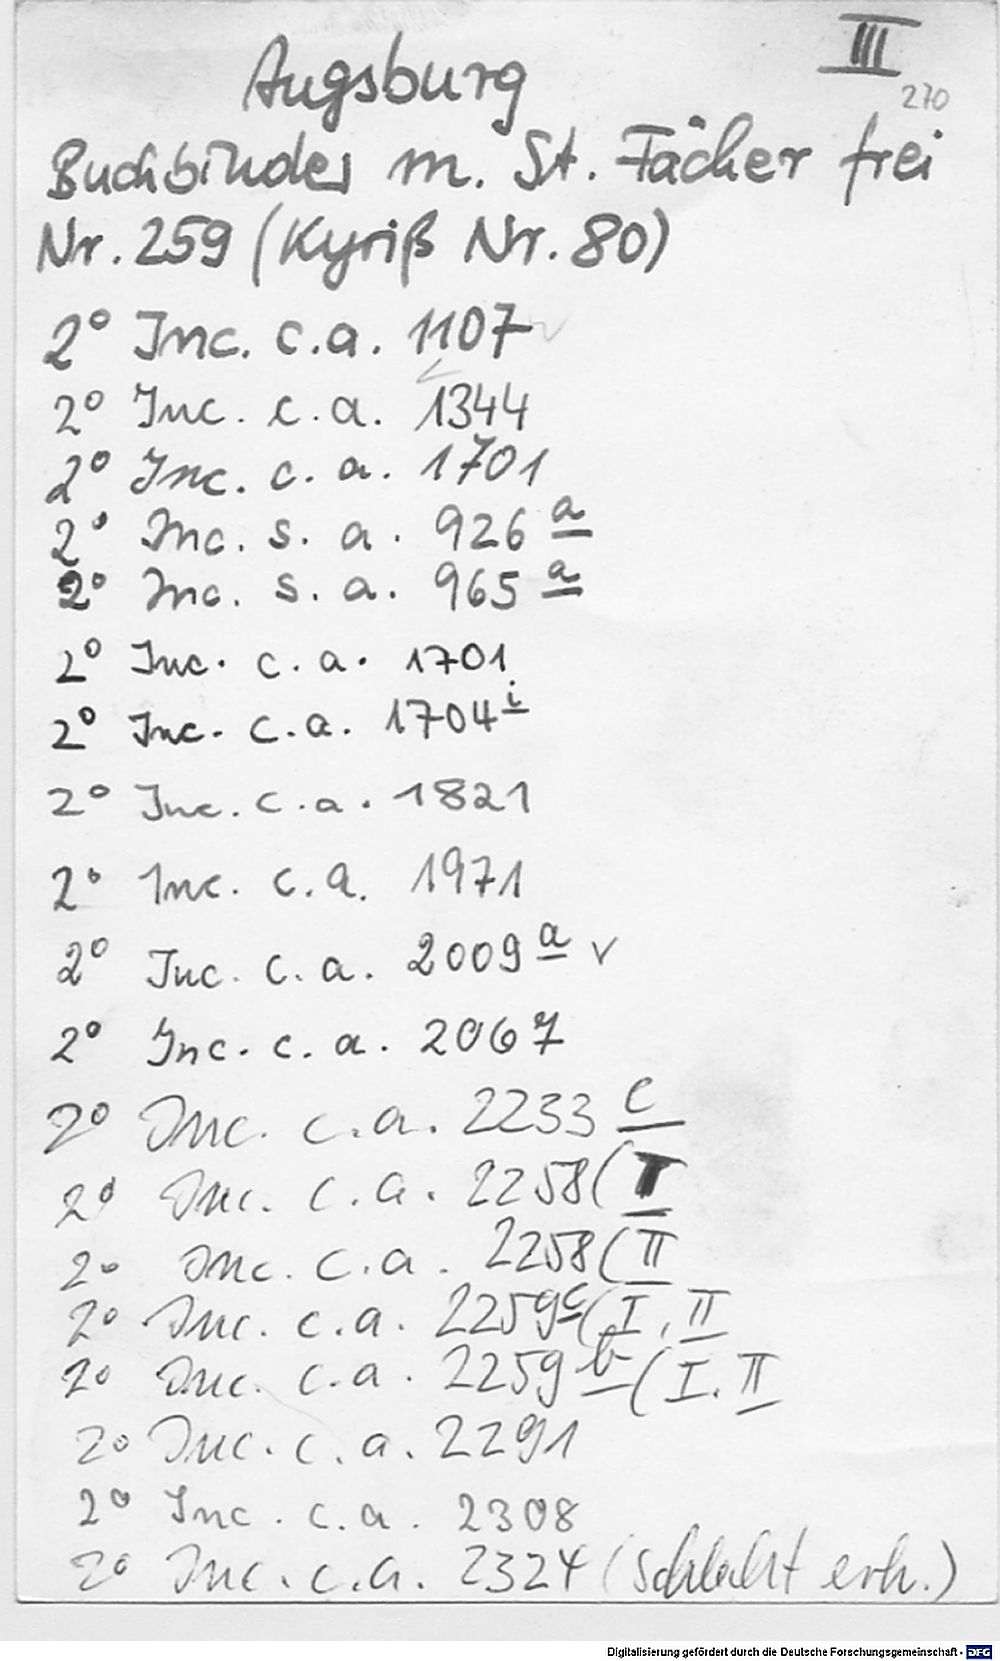 III
270
Augsburg
Buchbinder m. St. Fächer frei
Nr. 259 (Kyriß Nr. 80)
2° Inc. c.a. 1107 ✓
2° Inc. c.a. 1344
2° Inc. c.a. 1701
2° Inc. s.a. 926 a
2° Inc. s.a. 965 a
2° Inc. c.a. 1701
2° Inc. c.a. 1704 i
2° Inc. c.a. 1821
2° Inc. c.a. 1971
2° Inc. c.a. 2009 a ✓
2° Inc. c.a. 2067
2° Inc. c.a. 2233 c
2° Inc. c.a. 2258 (I
2° Inc. c.a. 2258 (II
2° Inc. c.a. 2259 c (I, II
2° Inc. c.a. 2259 b (I. II
2° Inc. c.a. 2291
2° Inc. c.a. 2308
2° Inc. c.a. 2324 (schlecht erh.)
Digitalisierung gefördert durch die Deutsche Forschungsgemeinschaft - DFG